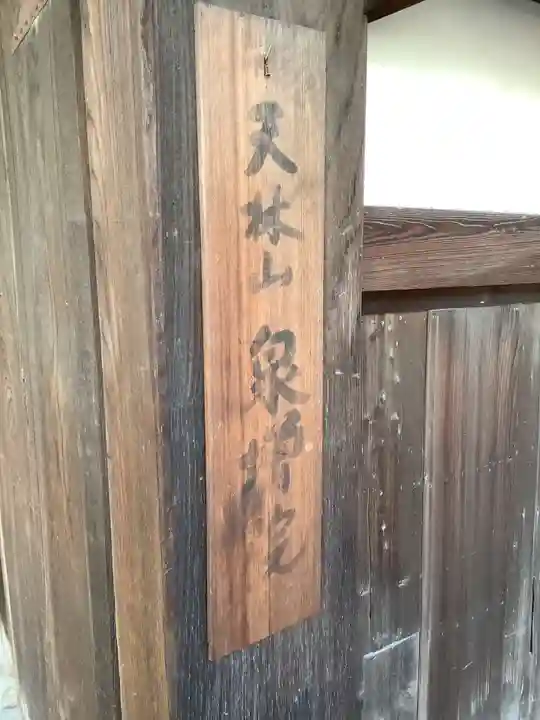 天林山 泉増院